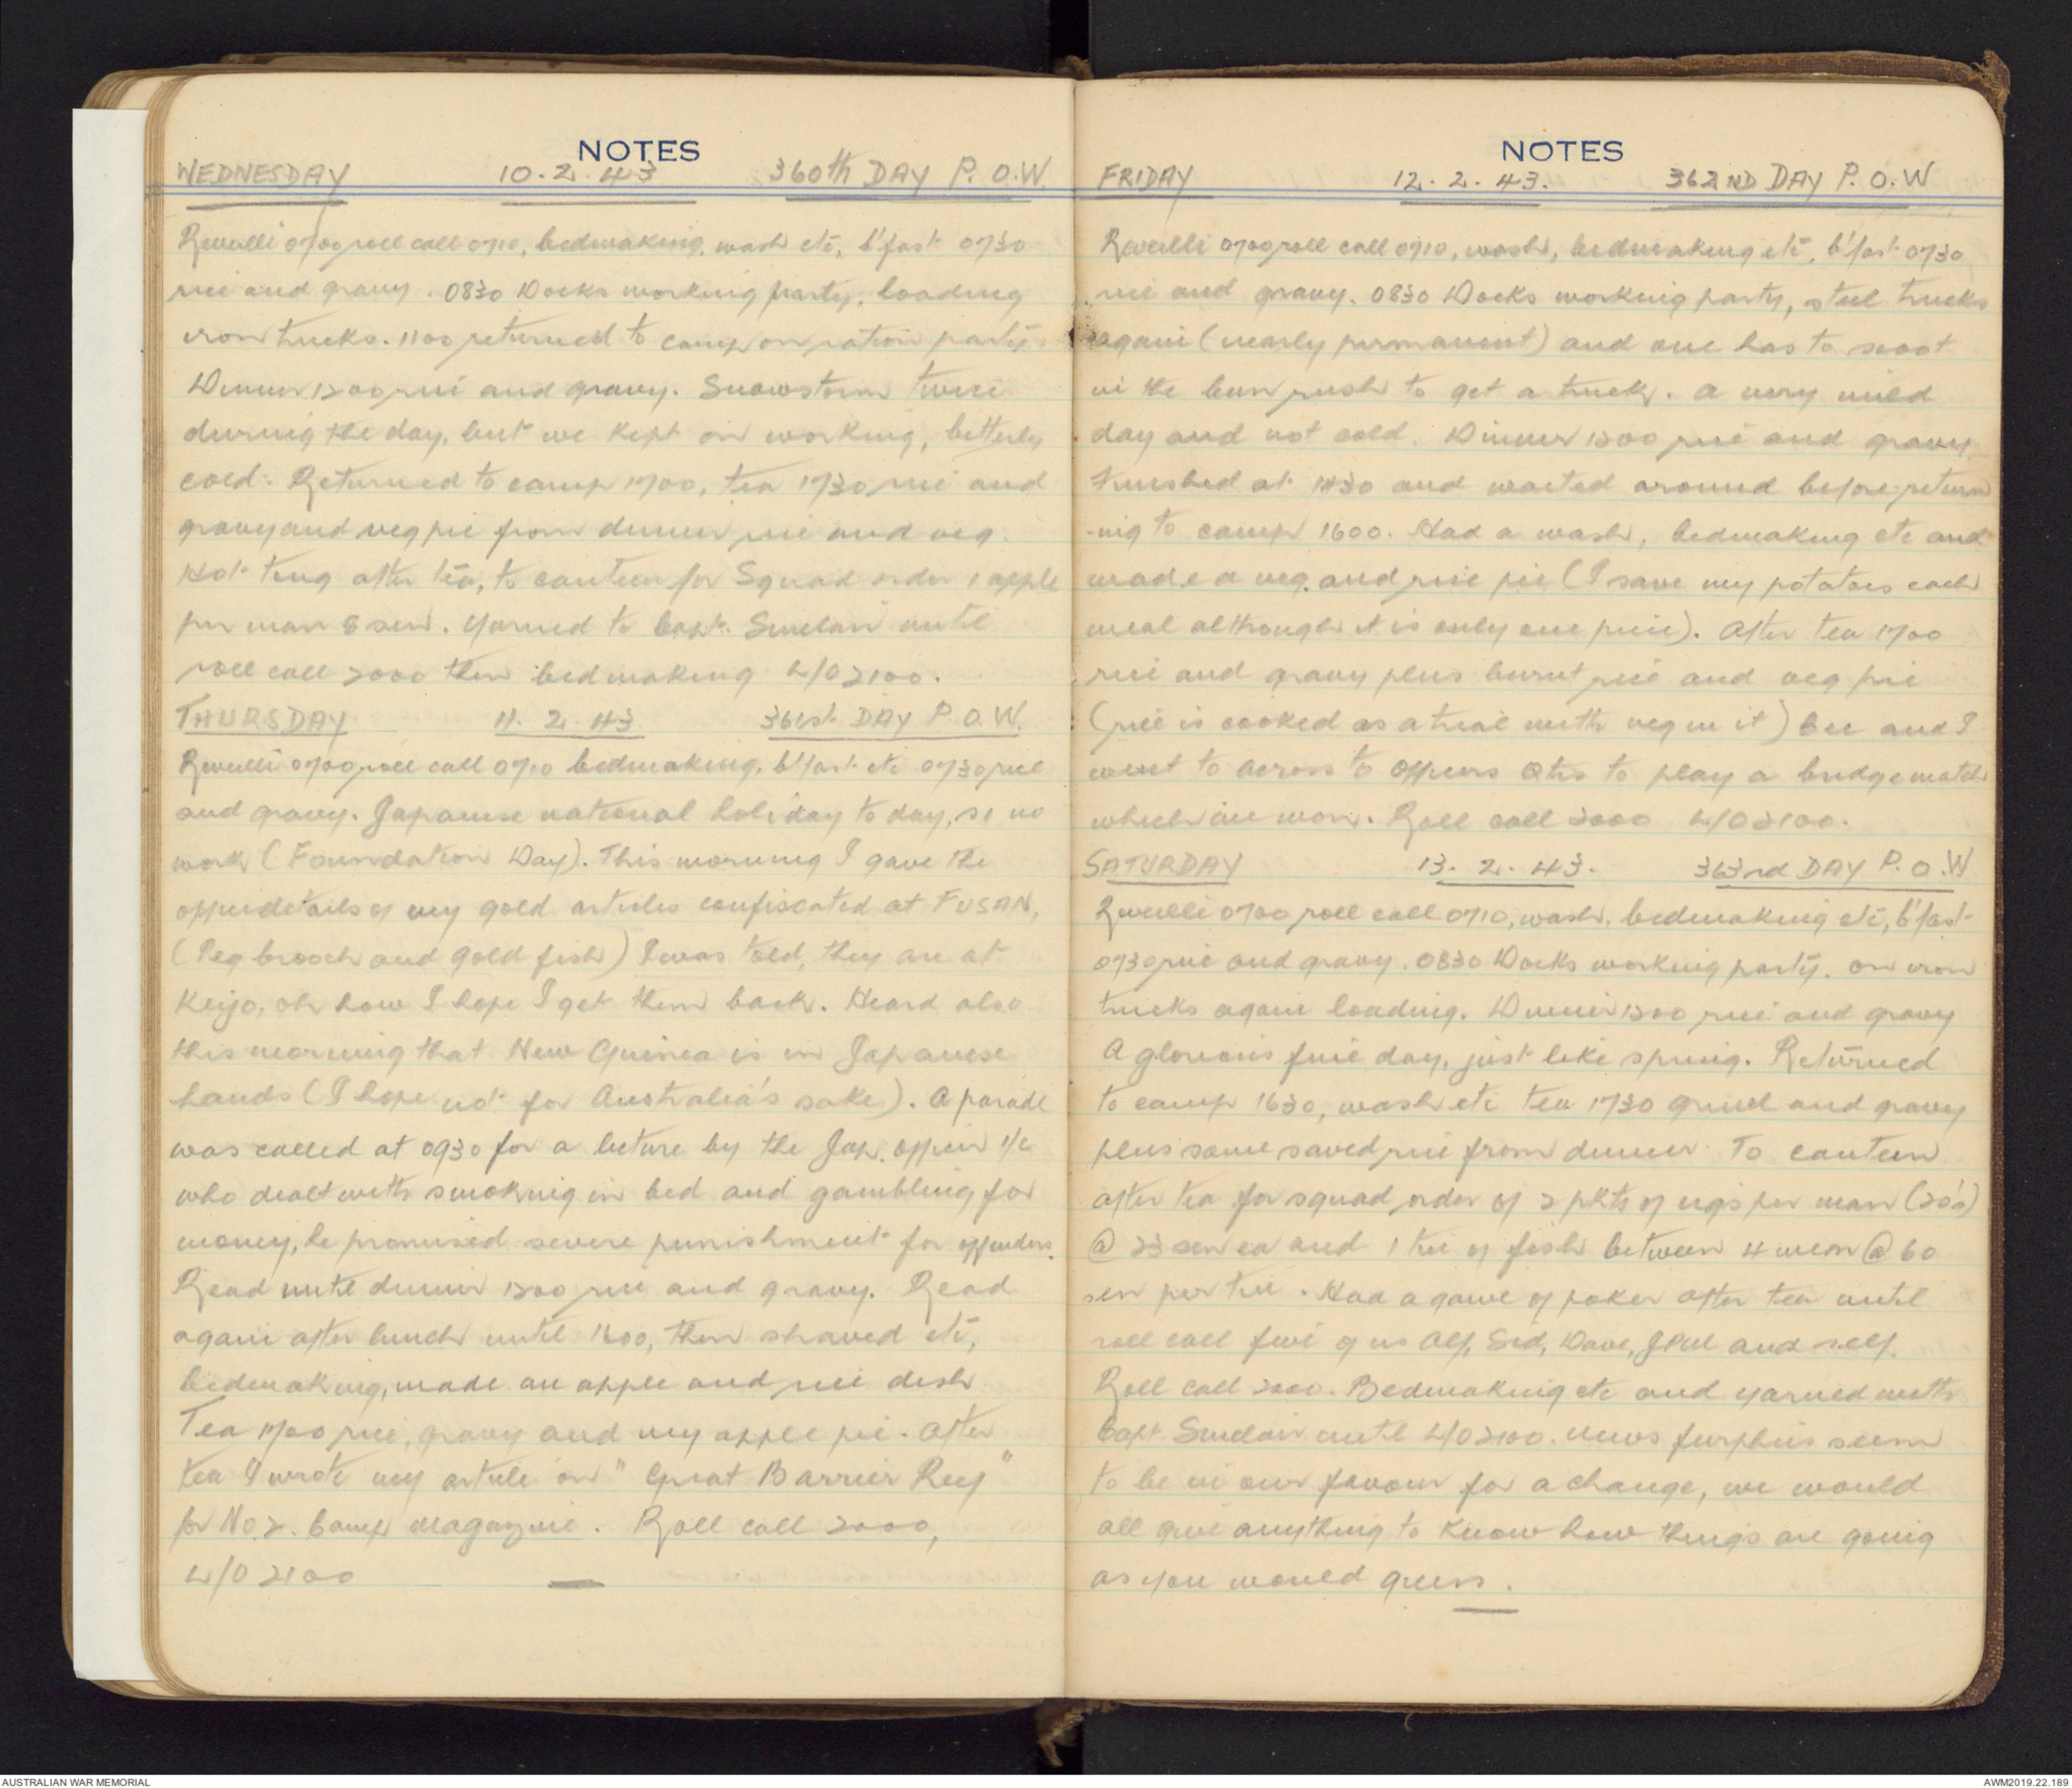 NOTES
WEDNESDAY 10.2.43 360th DAY P.O.W.
Revielli 0700 roll call 0710, bedmaking, wash etc, b'fast 0730
rice and gravy. 0830 Docks working party, loading
iron trucks. 1100 returned to camp on ration party.
Dinner 1200 rice and gravy. Snowstorm twice
during the day, but we kept on working, bitterly
cold. Returned to camp 1700, tea 1730 rice and
gravy and veg pie from dinner rice and veg.
Hot after tea, to canteen for Squad order 1 apple
per man 8 sen. Yarned to Capt. Sinclair until
roll call 2000 then bedmaking L/O 2100.
THURSDAY 11.2.43 361st DAY P.O.W.
Revielli 0700 roll call 0710 bedmaking, b'fast etc 0730 rice
and gravy. Japanese national holiday to day, so no
work (Foundation Day). This morning I gave the
officer details of my gold articles confiscated at FUSAN,
(Peg brooch and gold fish) I was told, they are at
Keijo, oh how I hope I get them back. Heard also
this morning that New Guinea is in Japanese
hands (I hope not for Australia's sake). A parade
was called at 0930 for a lecture by the Jap. officer i/c
who dealt with smoking in bed and gambling for
money, he promised severe punishment for offenders.
Read until dinner 1200 rice and gravy. Read
again after lunch until 1600, then shaved etc,
bedmaking, made an apple and rice dish
Tea 1700 rice, gravy and my apple pie. After
tea I wrote my article on "Great Barrier Reef"
for No 2. Camp magazine. Roll call 2000,
L/O 2100
NOTES
FRIDAY 12.2.43. 362ND DAY P.O.W
Revielli 0700 roll call 0710, wash, bedmaking etc, b'fast 0730
rice and gravy. 0830 Docks working party, steel trucks
again (nearly permanent) and one has to scoot
in the bun rush to get a truck. A very mild
day and not cold. Dinner 1200 rice and gravy.
Finished at 1430 and waited around before return
-ing to camp 1600. Had a wash, bedmaking etc and
made a veg. and rice pie (I save my potatoes each
meal although it is only one piece). After tea 1700
rice and gravy plus burnt rice and veg pie
(rice is cooked as a trial with veg in it) and I
went to across to Officers Qtrs to play a bridge match
which we won. Roll call 2000 L/O 2100.
SATURDAY 13.2.43. 363rd DAY P.O.W
Revielli 0700 roll call 0710, wash, bedmaking etc, b'fast
0730 rice and gravy. 0830 Docks working party. on iron
trucks again loading. Dinner 1200 rice and gravy
A glorious fine day, just like spring. Returned
to camp 1630, wash etc tea 1730 gruel and gravy
plus some saved rice from dinner. To canteen
after tea for squad order of 2 pkts of cigs per man (20's)
@ 23 sen ea and 1 tin of fish between 4 men @ 60
sen per tin. Had a game of poker after tea until
roll call five of us Alf, Sid, Dave, and self.
Roll call 2000. Bedmaking etc and yarned with
Capt. Sinclair until L/O 2100. News furphies seem
to be in our favour for a change, we would
all give anything to know how things are going
as you would guess.
AUSTRALIAN WAR MEMORIAL
AWM2019.22.189